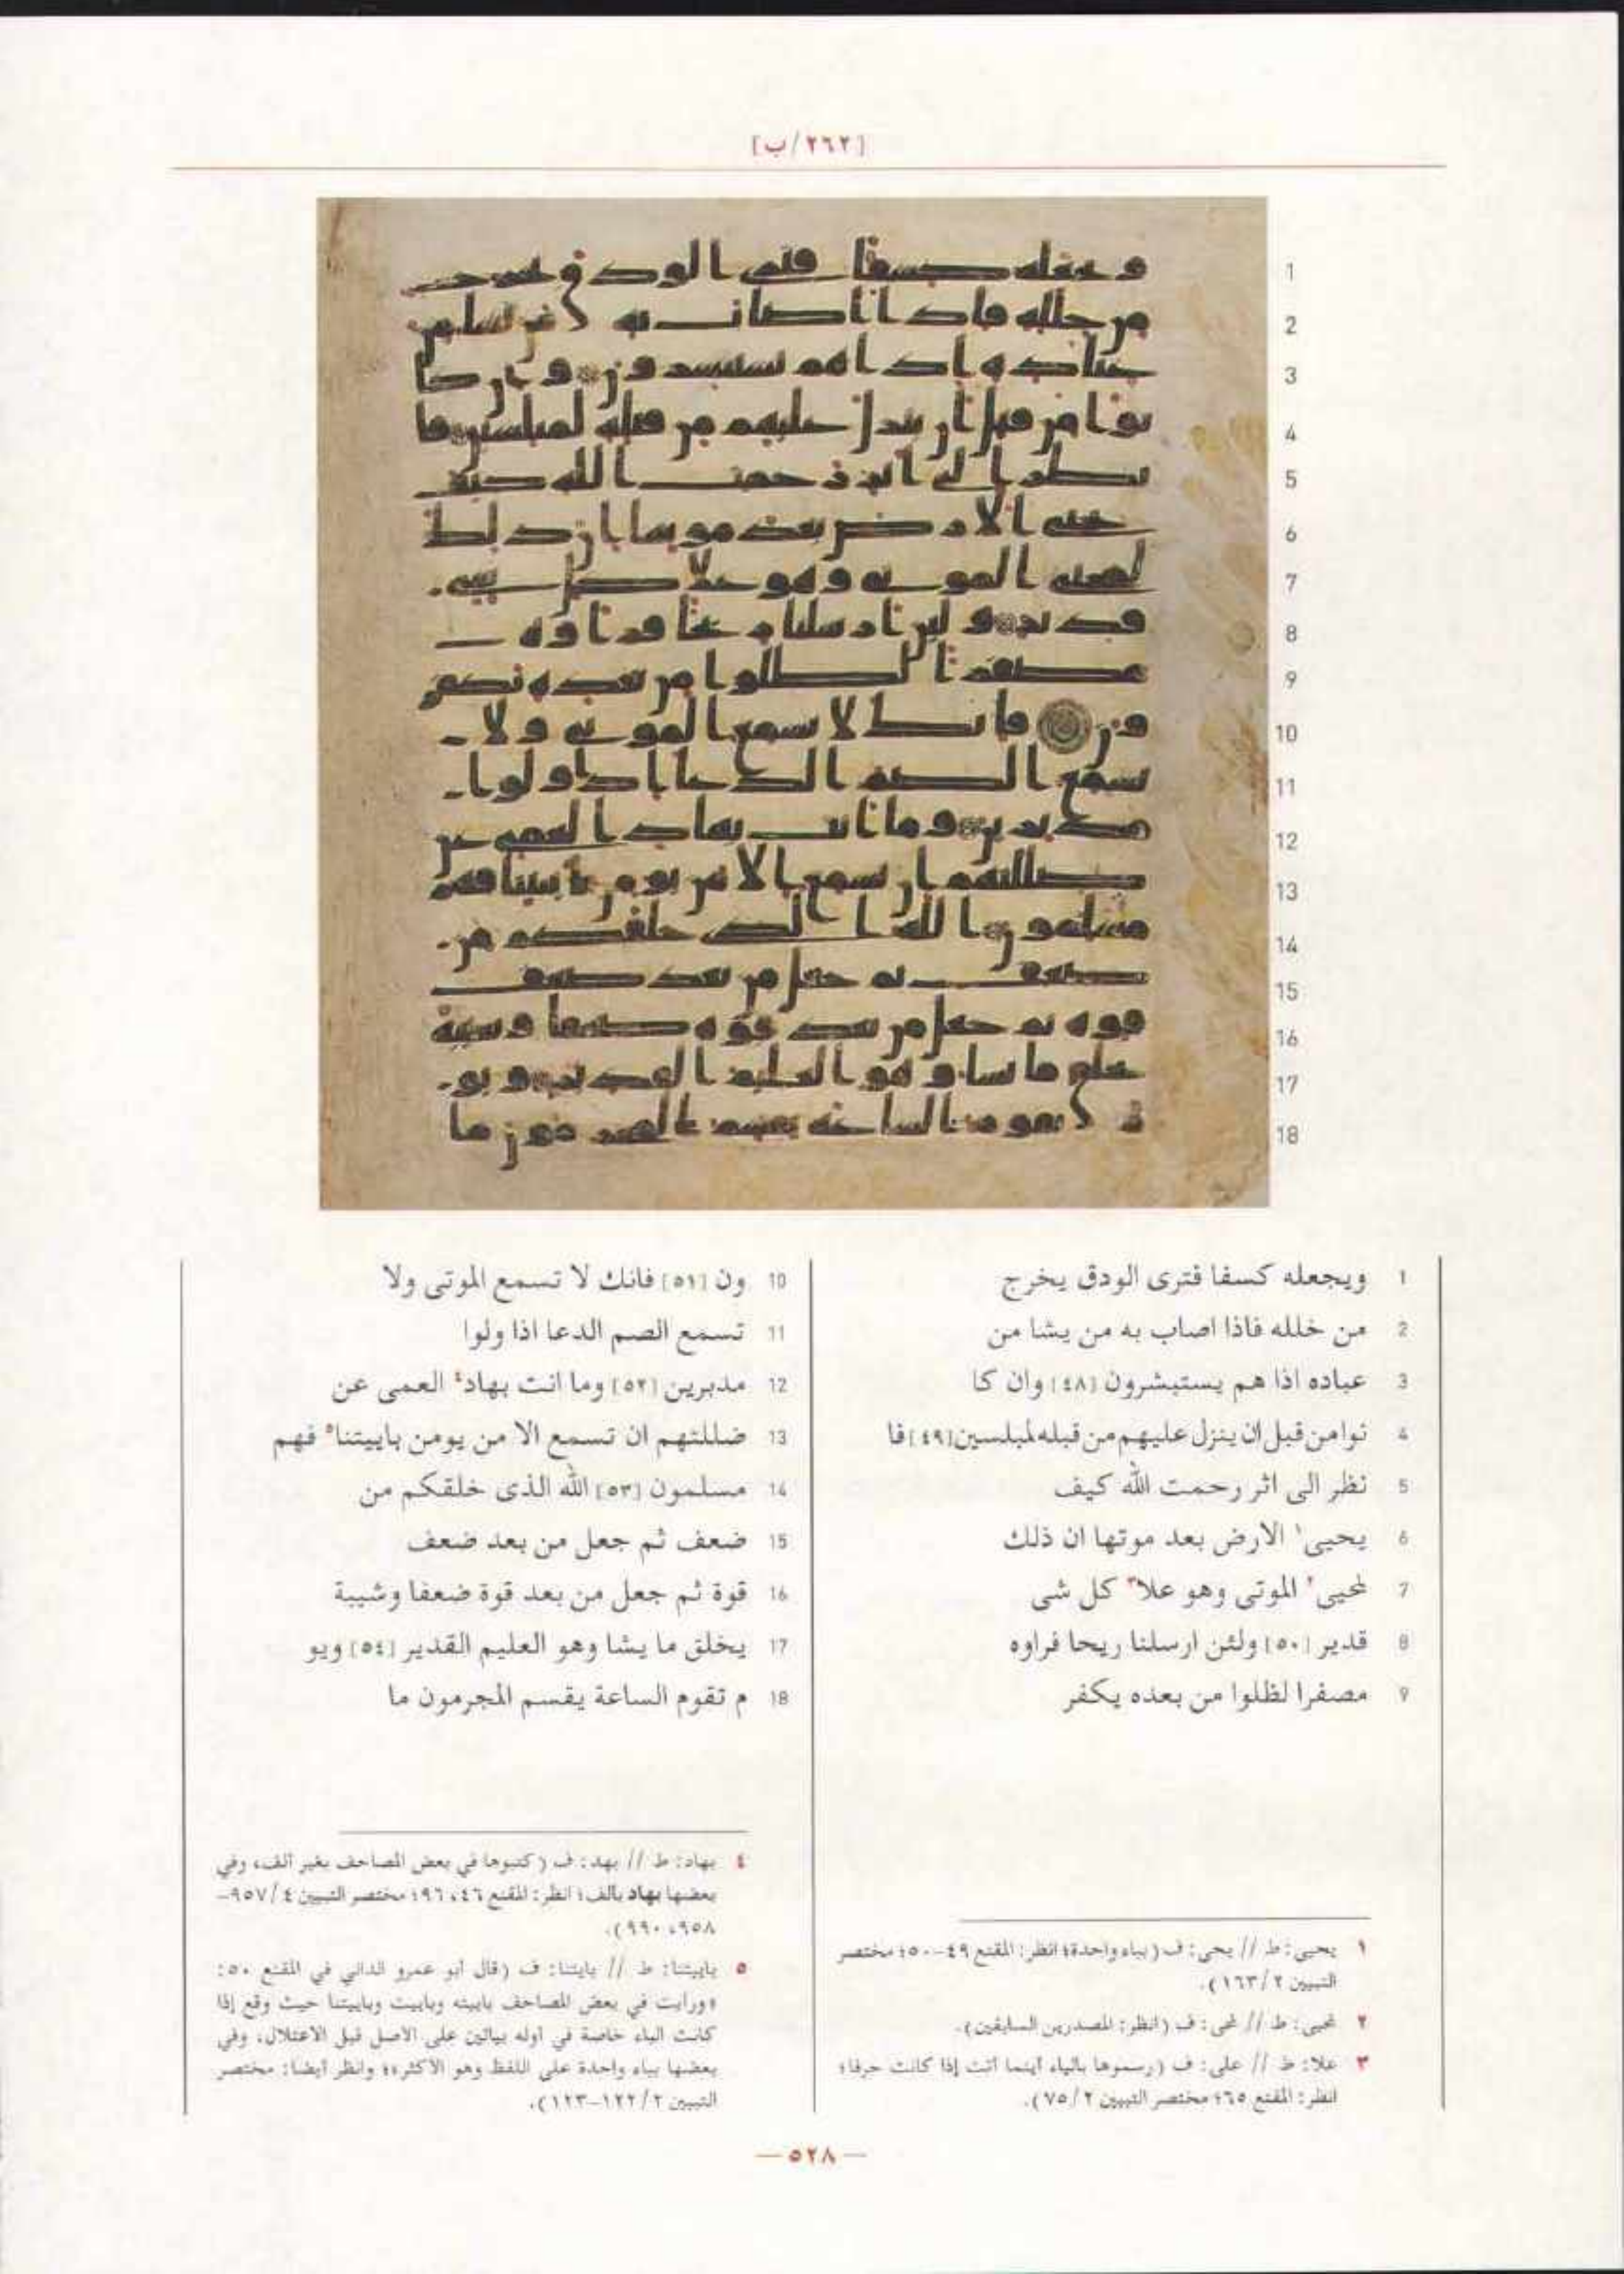 [٢٦٢/ب]
1 ويجعله كسفا فترى الودق يخرج
2 من خلله فاذا اصاب به من يشا من
3 عباده اذا هم يستبشرون [٤٨] وان كا
4 نوا من قبل ان ينزل عليهم من قبله لمبلسين [٤٩] فا
5 نظر الى اثر رحمت الله كيف
6 يحيى١ الارض بعد موتها ان ذلك
7 لمحيى٢ الموتى وهو علا٣ كل شى
8 قدير [٥٠] ولئن ارسلنا ريحا فراوه
9 مصفرا لظلوا من بعده يكفر
10 ون [٥١] فانك لا تسمع الموتى ولا
11 تسمع الصم الدعا اذا ولوا
12 مدبرين [٥٢] وما انت بهاد٤ العمى عن
13 ضللتهم ان تسمع الا من يومن باييتنا٥ فهم
14 مسلمون [٥٣] الله الذى خلقكم من
15 ضعف ثم جعل من بعد ضعف
16 قوة ثم جعل من بعد قوة ضعفا وشيبة
17 يخلق ما يشا وهو العليم القدير [٥٤] ويو
18 م تقوم الساعة يقسم المجرمون ما
١ يحيى: ط // يحى: ف (بياء واحدة؛ انظر: المقنع ٤٩-٥٠؛ مختصر
التبيين ٢/١٦٣).
٢ لمحيى: ط // لمحى: ف (انظر: المصدرين السابقين).
٣ علا: ط // على: ف (رسموها بالياء أينما أتت إذا كانت حرفا؛
انظر: المقنع ٦٥؛ مختصر التبيين ٢/٧٥).
٤ بهاد: ط // بهد: ف (كتبوها في بعض المصاحف بغير ألف، وفي
بعضها بهاد بألف؛ انظر: المقنع ٤٦، ٩٦؛ مختصر التبيين ٤/٩٥٧-
٩٥٨، ٩٩٠).
٥ باييتنا: ط // بايتنا: ف (قال أبو عمرو الداني في المقنع ٥٠:
«ورأيت في بعض المصاحف باييته وباييت وباييتنا حيث وقع إذا
كانت الباء خاصة في أوله بيائين على الأصل قبل الاعتلال، وفي
بعضها بياء واحدة على اللفظ وهو الأكثر»؛ وانظر أيضا: مختصر
التبيين ٢/١٢٢-١٢٣).
— ٥٢٨ —